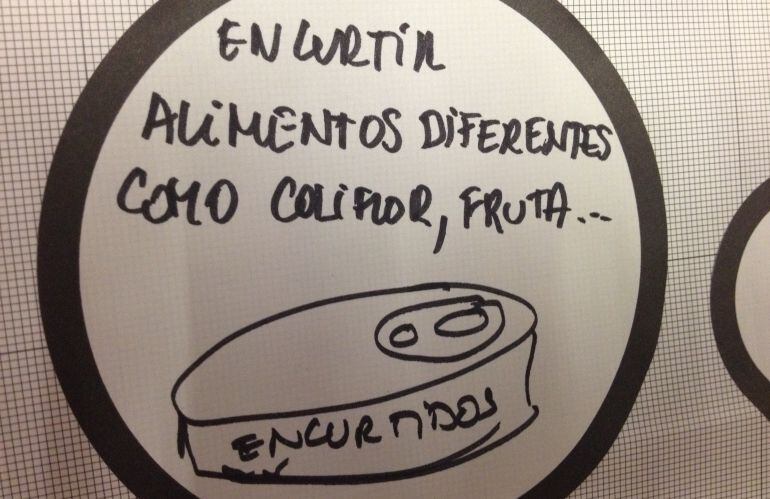 ENCURTIR
ALIMENTOS DIFERENTES
COMO COLIFLOR, FRUTA...
ENCURTIDOS